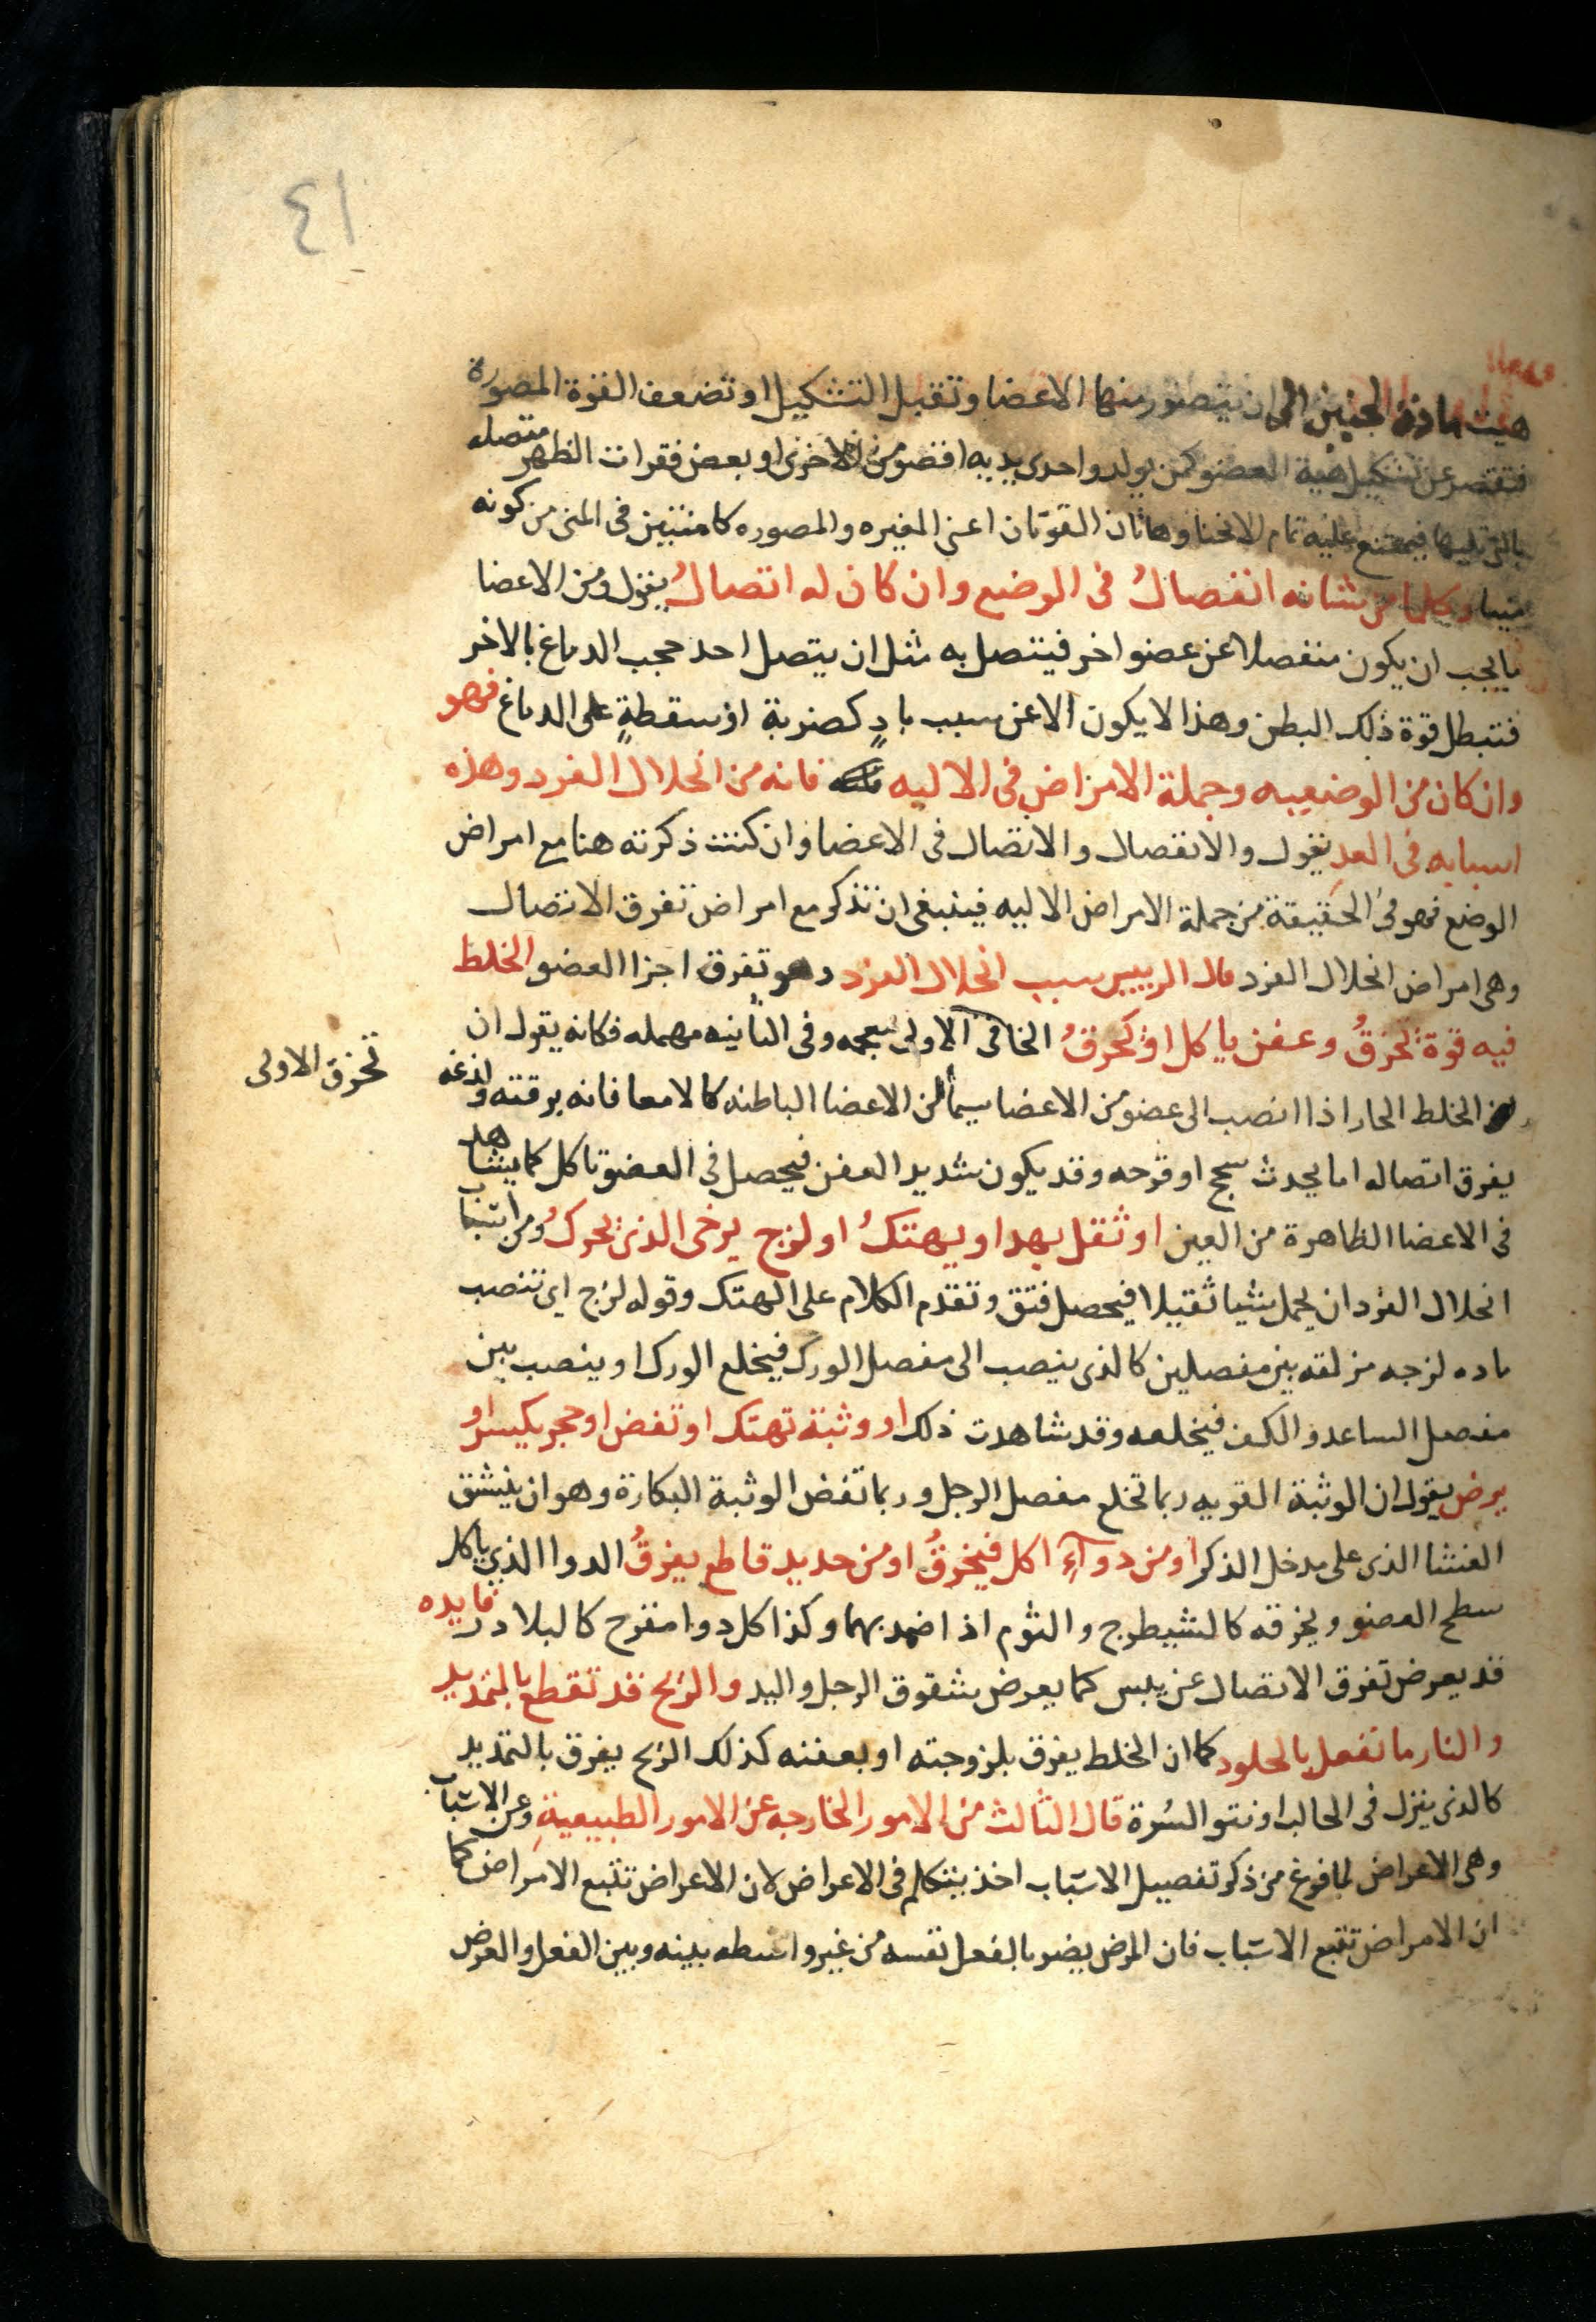 ٤١
هيت مادة الجنين الى ان يتصور منها الاعضا وتقبل التشكيل او تضعف القوة المصورة
فتقصر عن تشكيل هية العضو كمن يولد واحدى يديه اقصر من الاخرى او بعض فقرات الظهر متصله
بالتى تليها فيمتنع عليه تمام الانحنا وهاتان القوتان اعنى المغيره والمصوره كامنتين فى المنى من كونه
منيا وكلما من شانه انفصالُ فى الوضع وان كان له اتصالُ يقول ومن الاعضا
ما يجب ان يكون منفصلا عن عضو اخر فيتصل به مثل ان يتصل احد حجب الدماغ بالاخر
فتبطل قوة ذلك البطن وهذا لا يكون الا عن سبب بادٍ كضربة او سقطةٍ على الدماغ فهو
وان كان من الوضعيه وجملة الامراض فى الاليه فانه من انحلال الفرد وهذه
اسبابه فى العد يقول والانفصال والاتصال فى الاعضا وان كنت ذكرته هنا مع امراض
الوضع فهو فى الحقيقة من جملة الامراض الاليه فينبغى ان تذكر مع امراض تفرق الاتصال
وهى امراض انحلال الفرد قال الرييس سبب انحلال الفرد وهو تفرق اجزا العضو الخلط
فيه قوة تخرقُ وعفن ياكل او تحرقُ الخا فى الاولى معجمه وفى الثانيه مهمله فكانه يقول ان
الخلط الحار اذا انصب الى عضو من الاعضا سيما من الاعضا الباطنه كالامعا فانه برقته ولذعه
تخرق الاولى
يفرق اتصاله اما يحدث سحج او قرحه وقد يكون شديد العفن فيحصل فى العضو تاكل كما يشاهد
فى الاعضا الظاهرة من العين او ثقل يهد او يهتكُ او لزج يرخى الذى يحركُ ومن اسباب
انحلال الفرد ان يحمل شيا ثقيلا فيحصل فتق وتقدم الكلام على الهتك وقوله لزج اى تنصب
ماده لزجه مزلقه بين مفصلين كالذى ينصب الى مفصل الورك فيخلع الورك او ينصب بين
مفصل الساعد والكف فيخلعه وقد شاهدت ذلك او وثبة تهتك او تفض او حجر يكسر او
يرض يقول ان الوثبة القويه ربما تخلع مفصل الرجل وربما تفض الوثبة البكارة وهو ان ينشق
الغشا الذى على مدخل الذكر او من دوآءٍ اكل فيخرقُ او من حديد قاطع يفرقُ الدوا الذى ياكل
سطح العضو ويخرقه كالشيطرج والثوم اذا ضمد بهما وكذا كل دوا مقرح كالبلادر فايده
قد يعرض تفرق الاتصال عن يبس كما يعرض شقوق الرجل واليد والريح قد تقطع بالتمديد
والنار ما تفعل بالجلود كما ان الخلط يفرق بلزوجته او بعفنه كذلك الريح يفرق بالتمديد
كالذى ينزل فى الحالب او نتو السُرة قال الثالث من الامور الخارجه عن الامور الطبيعيةِ وعن الاسباب
وهى الاعراض لما فرغ من ذكر تفصيل الاسباب اخذ يتكلم فى الاعراض لان الاعراض تتبع الامراض كما
ان الامراض تتبع الاسباب فان المرض يضر بالفعل نفسه من غير واسطه بينه وبين الفعل والعرض